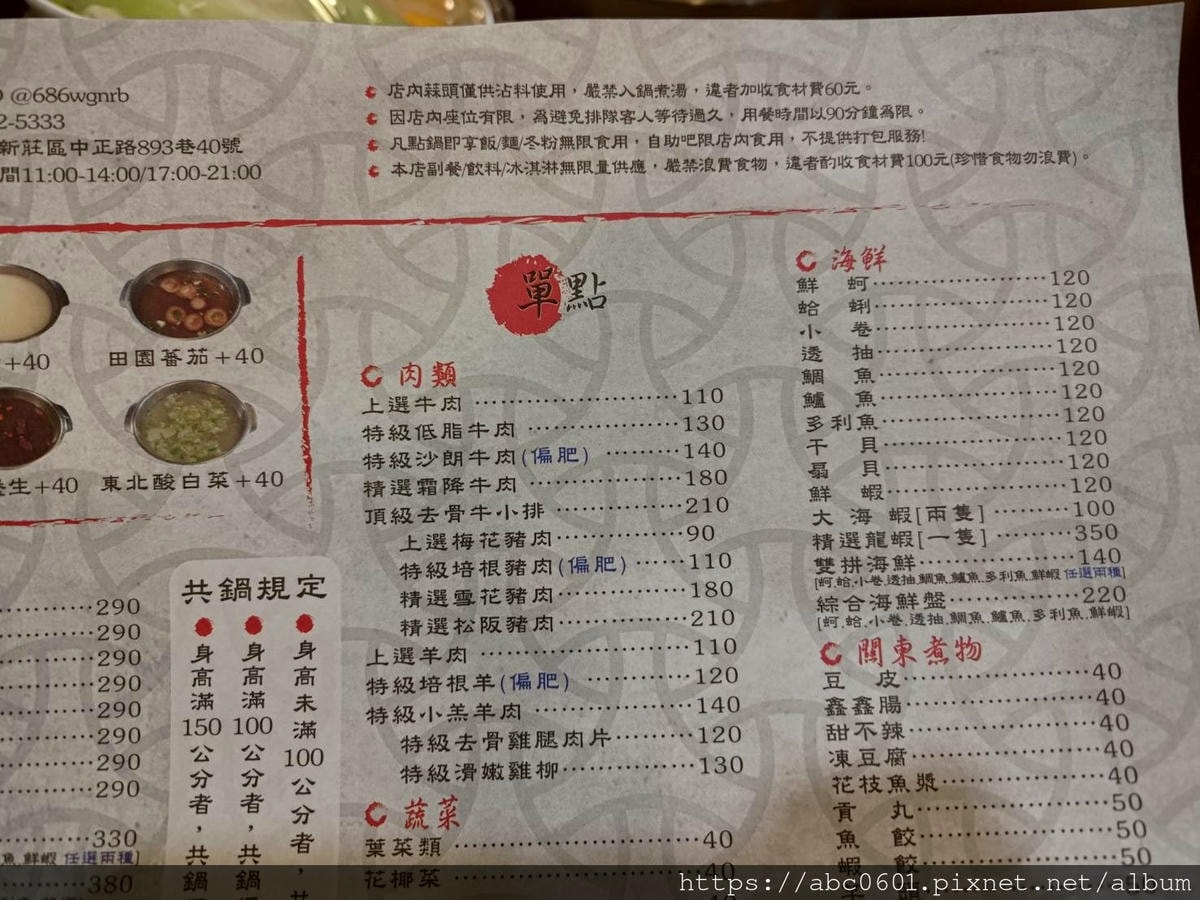 @686wgnrb
2-5333
新莊區中正路893巷40號
間11:00-14:00/17:00-21:00
店內蒜頭僅供沾料使用，嚴禁入鍋煮湯，違者加收食材費60元。
因店內座位有限，為避免排隊客人等待過久，用餐時間以90分鐘為限。
凡點鍋即享飯/麵/冬粉無限食用，自助吧限店內食用，不提供打包服務!
本店副餐/飲料/冰淇淋無限量供應，嚴禁浪費食物，違者酌收食材費100元(珍惜食物勿浪費)。
+40
田園蕃茄+40
養生+40
東北酸白菜+40
290
290
290
290
290
290
290
290
330
魚.鮮蝦 任選兩種]
380
共鍋規定
身高未滿100公分者，共
身高滿100公分者，共鍋
身高滿150公分者，共鍋
單點
肉類
上選牛肉 110
特級低脂牛肉 130
特級沙朗牛肉(偏肥) 140
精選霜降牛肉 180
頂級去骨牛小排 210
上選梅花豬肉 90
特級培根豬肉(偏肥) 110
精選雪花豬肉 180
精選松阪豬肉 210
上選羊肉 110
特級培根羊(偏肥) 120
特級小羔羊肉 140
特級去骨雞腿肉片 120
特級滑嫩雞柳 130
蔬菜
葉菜類 40
花椰菜 40
海鮮
鮮蚵 120
蛤蜊 120
小卷 120
透抽 120
鯛魚 120
鱸魚 120
多利魚 120
干貝 120
扇貝 120
鮮蝦 120
大海蝦[兩隻] 100
精選龍蝦[一隻] 350
雙拼海鮮 140
[蚵.蛤.小卷.透抽.鯛魚.鱸魚.多利魚.鮮蝦 任選兩種]
綜合海鮮盤 220
[蚵.蛤.小卷.透抽.鯛魚.鱸魚.多利魚.鮮蝦]
關東煮物
豆皮 40
鑫鑫腸 40
甜不辣 40
凍豆腐 40
花枝魚漿 40
貢丸 50
魚餃 50
蝦餃 50
https://abc0601.pixnet.net/album